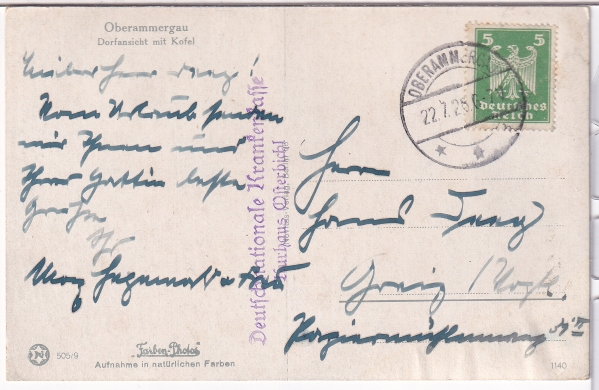 Oberammergau
Dorfansicht mit Kofel
Lieber Herr
Vom Urlaub senden
wir Ihnen und
Ihrer Gattin beste
Grüße
Ihr
Deutschnationale Krankenkasse
Kurhaus Osterbichl
OBERAMMERGAU
22.7.25
5 5
Deutsches
Reich
Herrn
Hans
Greiz / Vogtl.
Papiermühlenweg
505/9
Farben-Photos
Aufnahme in natürlichen Farben
1140